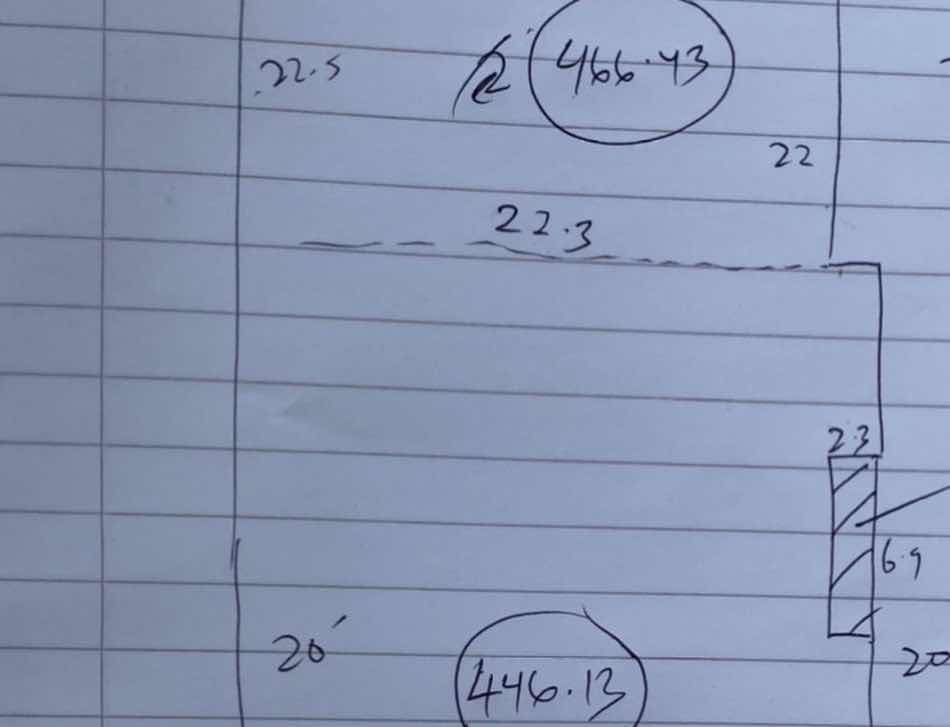 22.5
466.43
22
22.3
2.3
6.9
20'
20
446.13